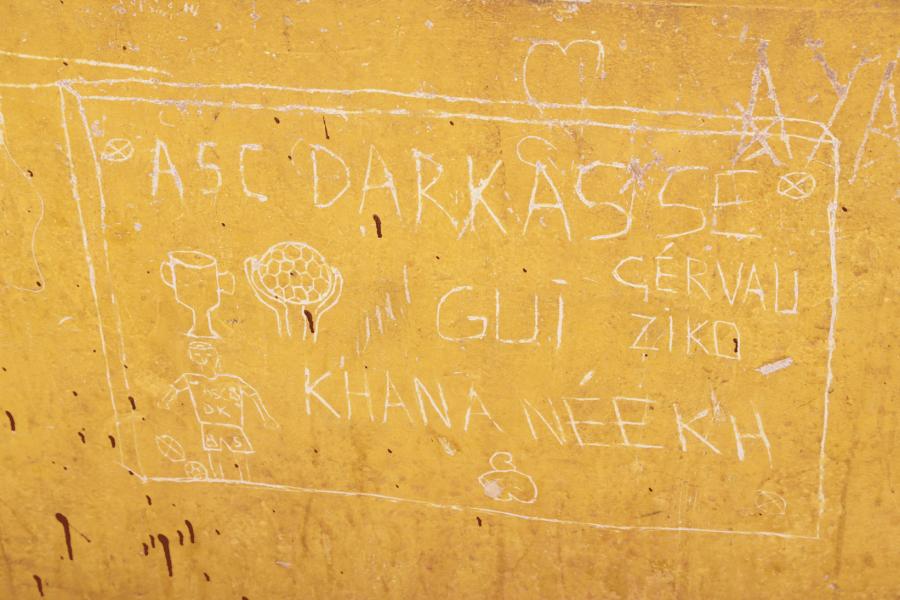 AYA
ASC DARKASSE
GUI
GÉRVAU
ZIKO
KHANA NÉEKH
DK